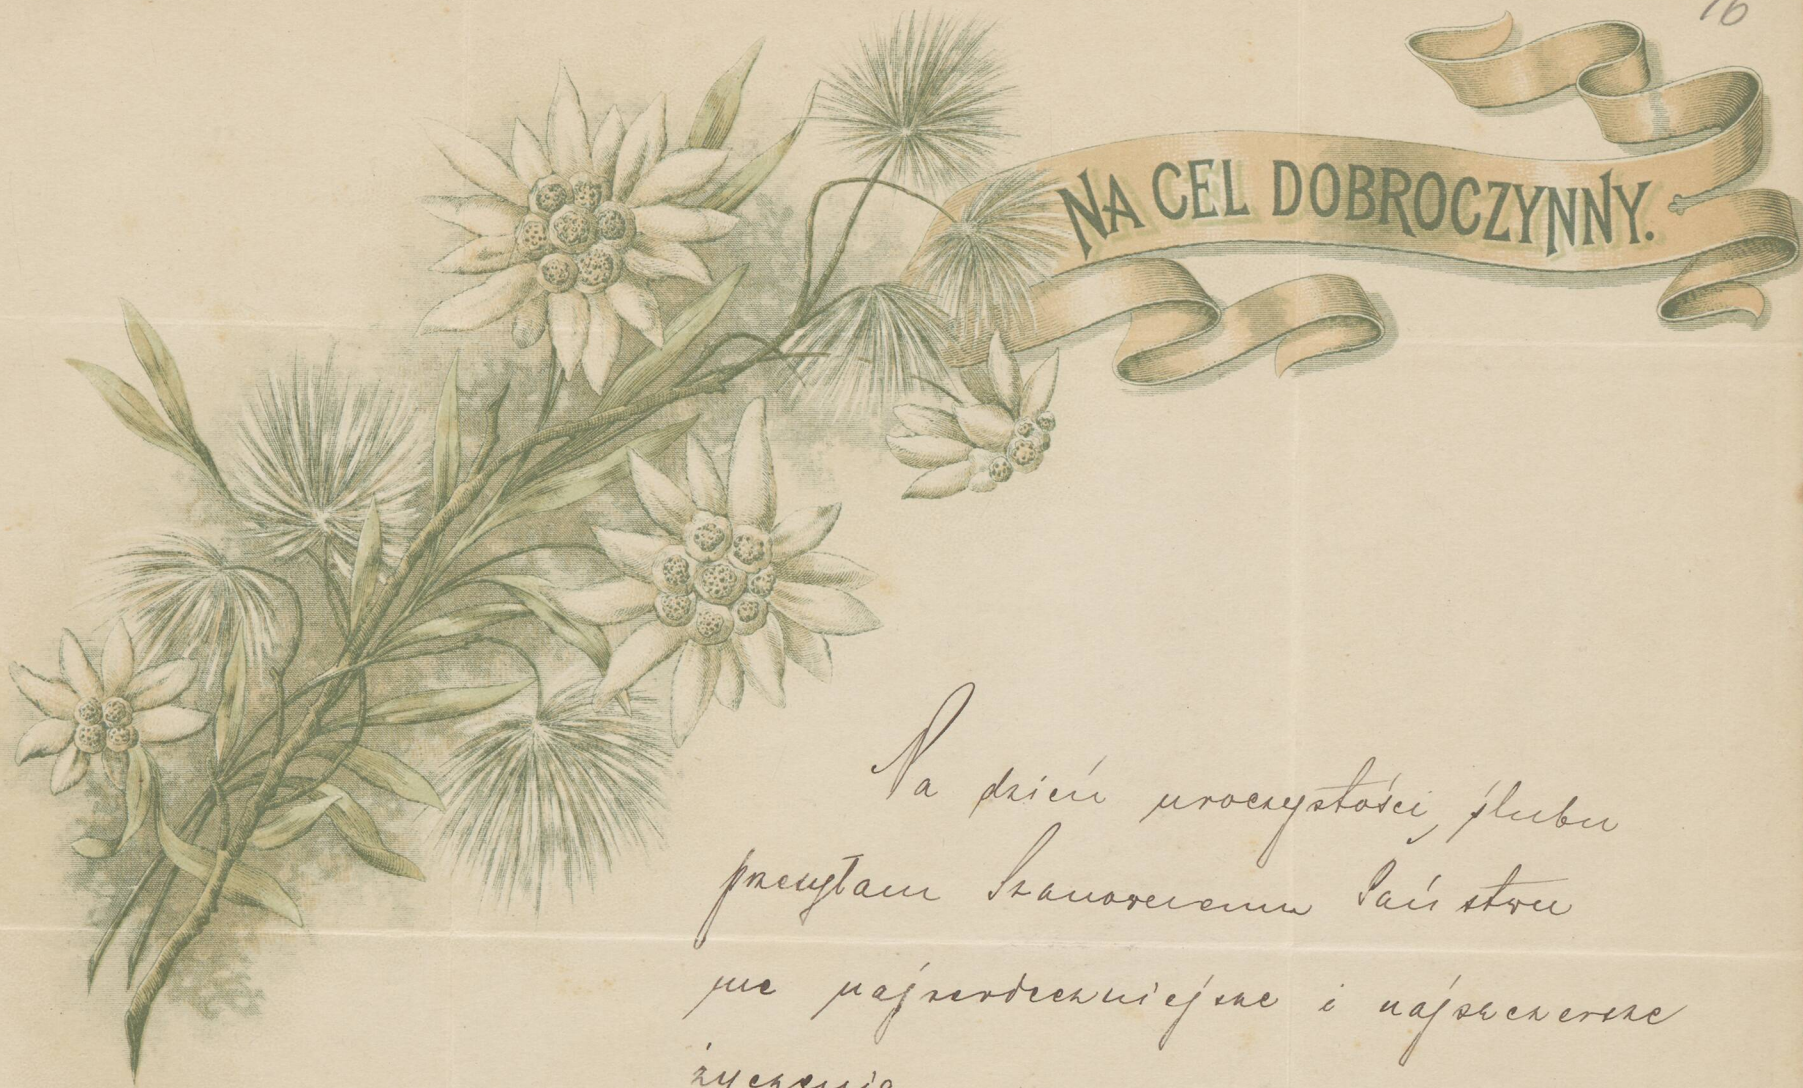 16
NA CEL DOBROCZYNNY.
Na dzień uroczystości ślubu
przesyłam Szanownemu Państwu
me najserdeczniejsze i najszczersze
życzenia